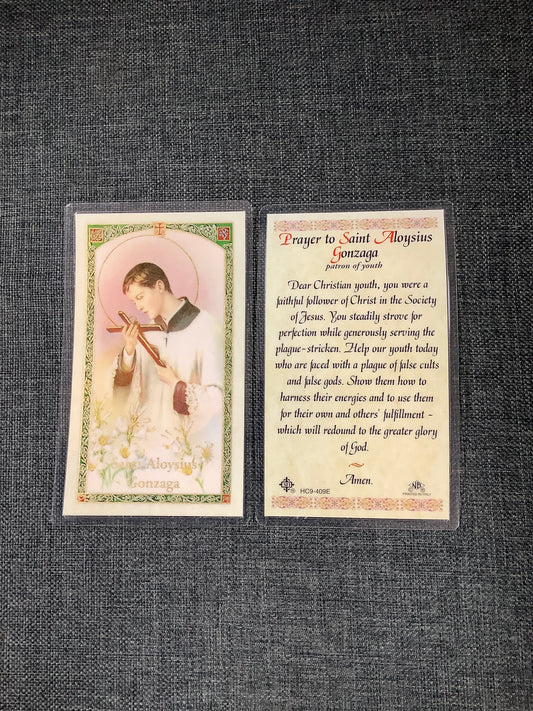 Saint Aloysius
Gonzaga
Prayer to Saint Aloysius
Gonzaga
patron of youth
Dear Christian youth, you were a
faithful follower of Christ in the Society
of Jesus. You steadily strove for
perfection while generously serving the
plague-stricken. Help our youth today
who are faced with a plague of false cults
and false gods. Show them how to
harness their energies and to use them
for their own and others' fulfillment -
which will redound to the greater glory
of God.
~
Amen.
HC9-409E